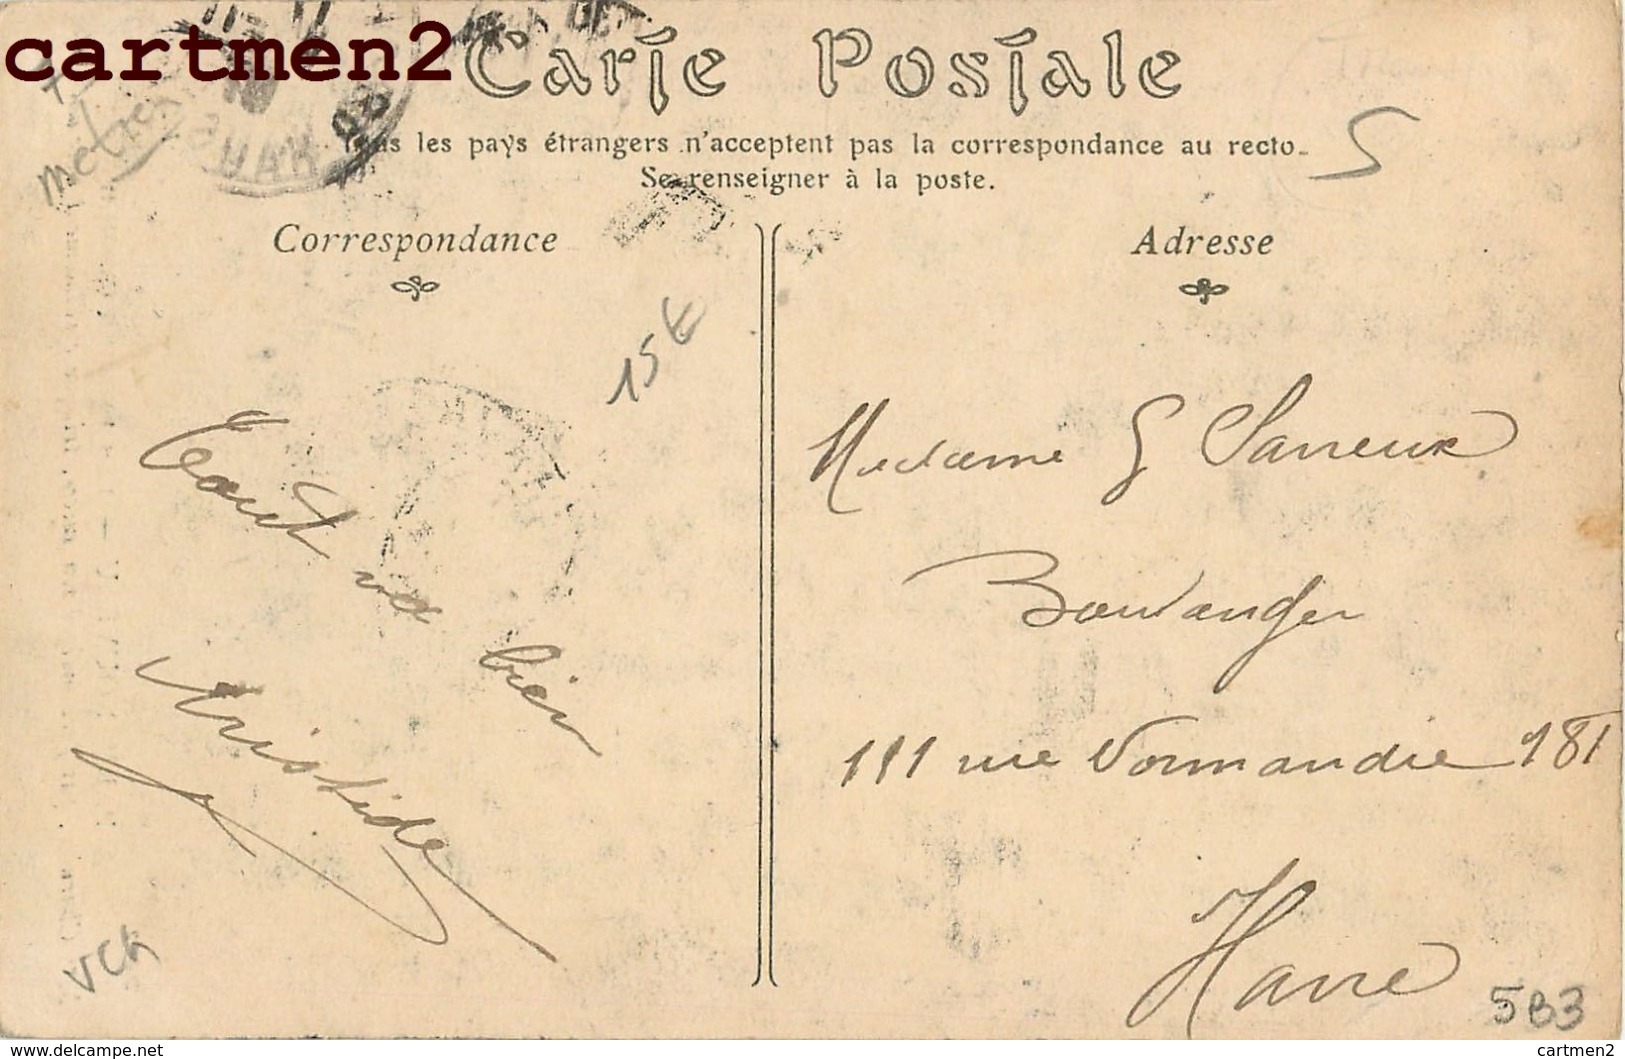 cartmen2
Carte Postale
Tous les pays étrangers n'acceptent pas la correspondance au recto.
Se renseigner à la poste.
Correspondance
Adresse
5
metier
15€
Tout va bien
Aristide
Madame G
Boulanger
111 rue Normandie 181
Havre
VCK
583
www.delcampe.net
cartmen2